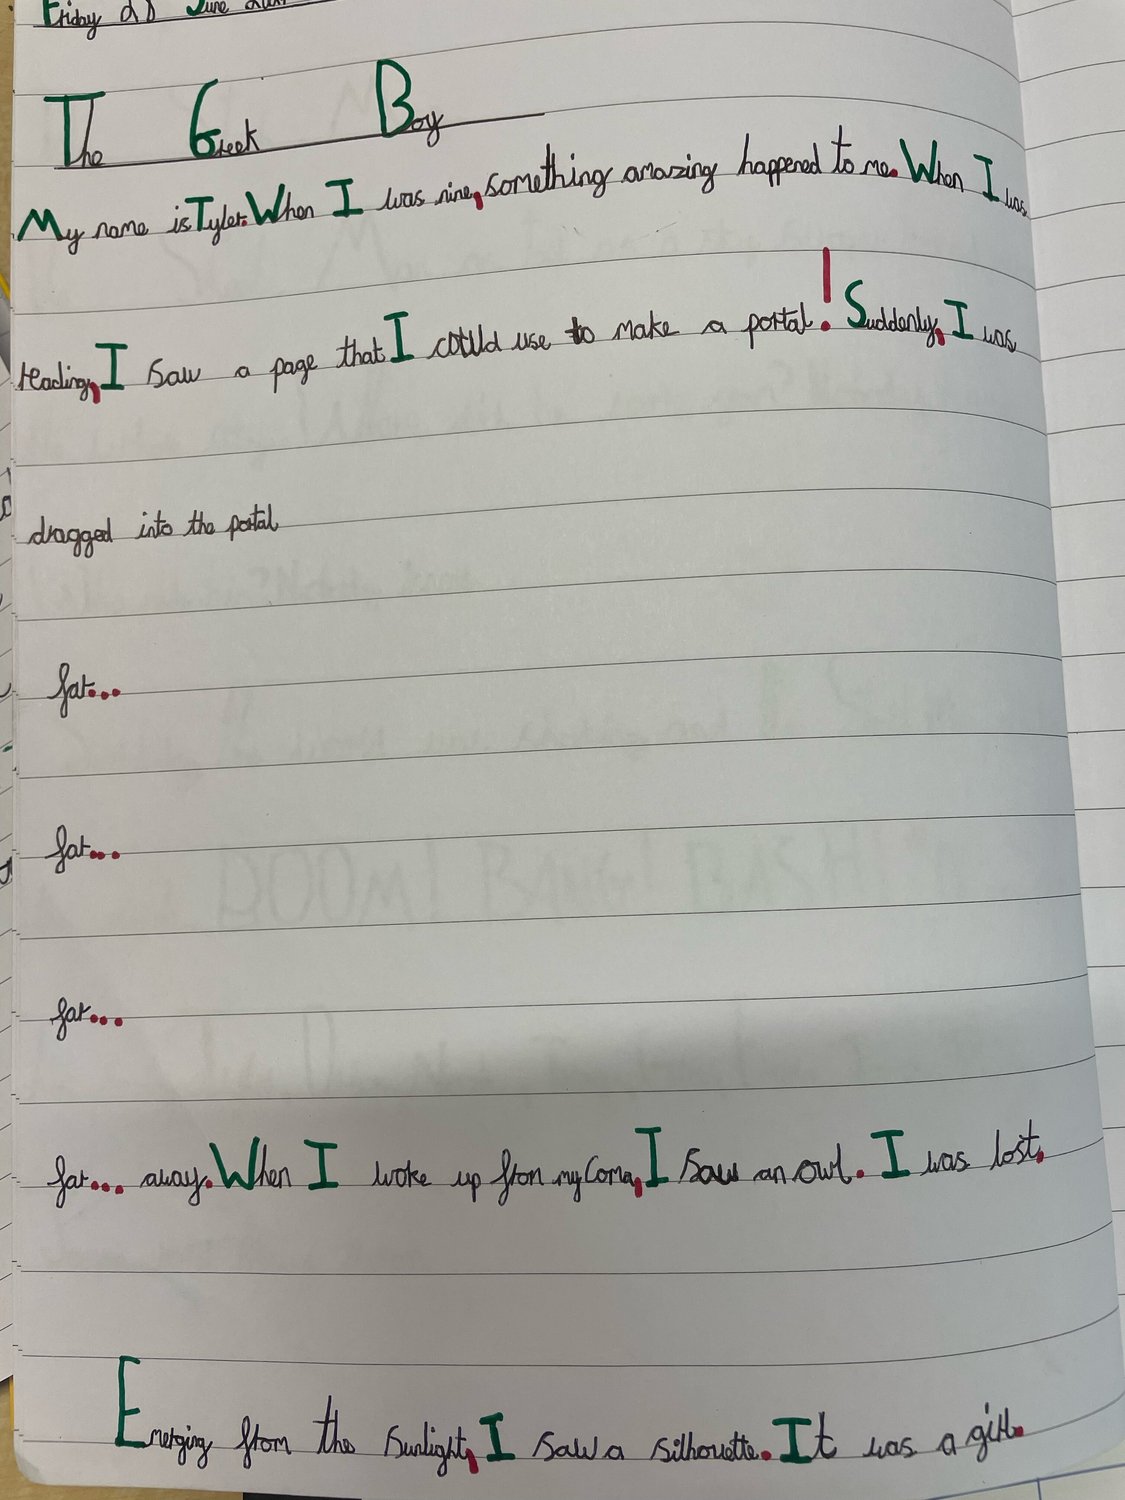 Friday 28 June
The Greek Boy
My name is Tyler. When I was nine, something amazing happened to me. When I was
reading, I saw a page that I could use to make a portal! Suddenly, I was
dragged into the portal
far...
far...
far...
far... away. When I woke up from my Coma, I saw an owl. I was lost.
Emerging from the sunlight, I saw a silhouette. It was a girl.